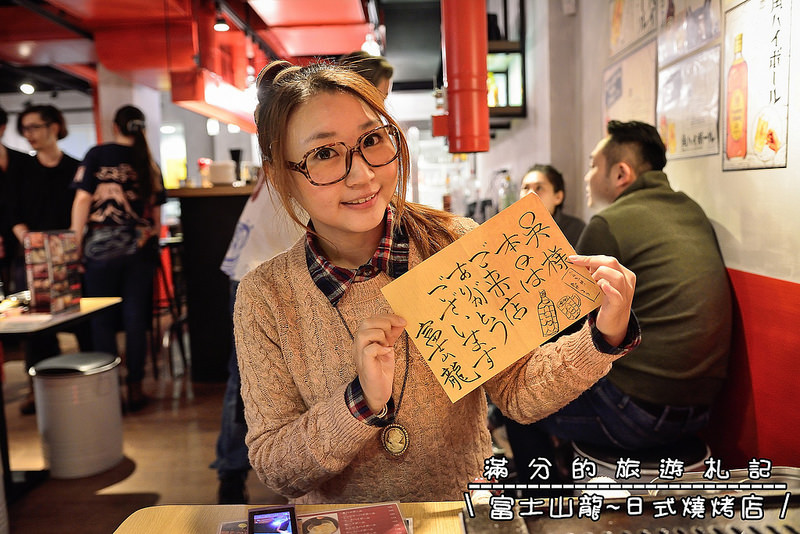 呉様
本のは
ご来店
ありがとう
ございます
富士山龍
角ハイボール
角ハイボール
滿分的旅遊札記
\ 富士山龍~日式燒烤店 /